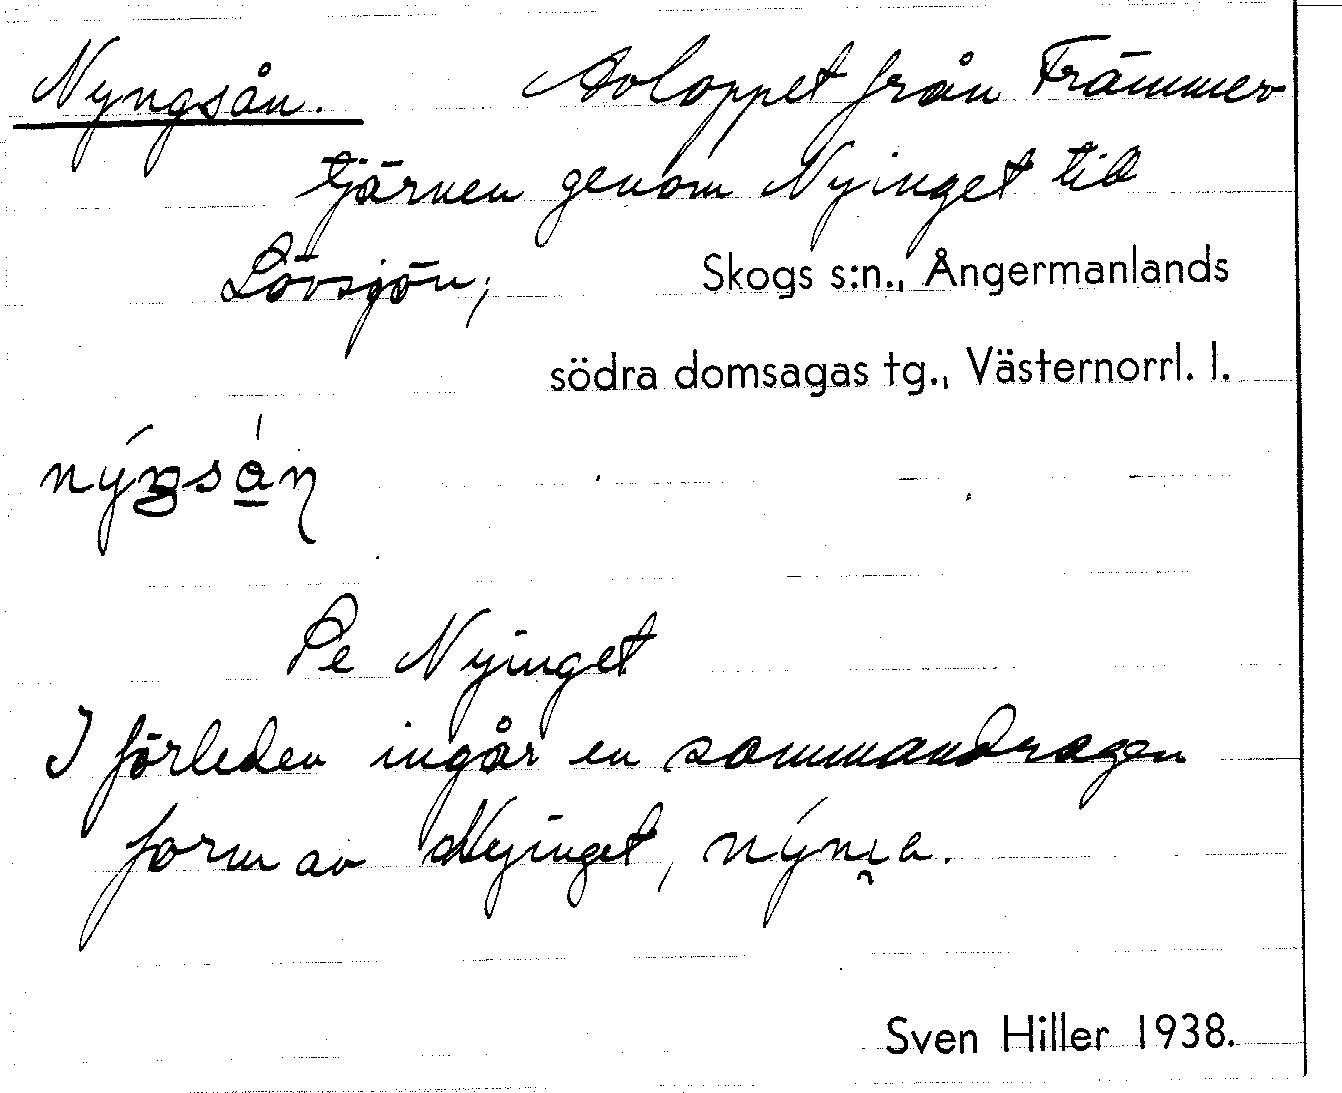 Nyngsån. Avloppet från Främmer
tjärnen genom Nyinget till
Lövsjön; Skogs s:n., Ångermanlands
södra domsagas tg., Västernorrl. l.
Se Nyinget
I förleden ingår en sammandragen
form av Nyinget,
Sven Hiller 1938.